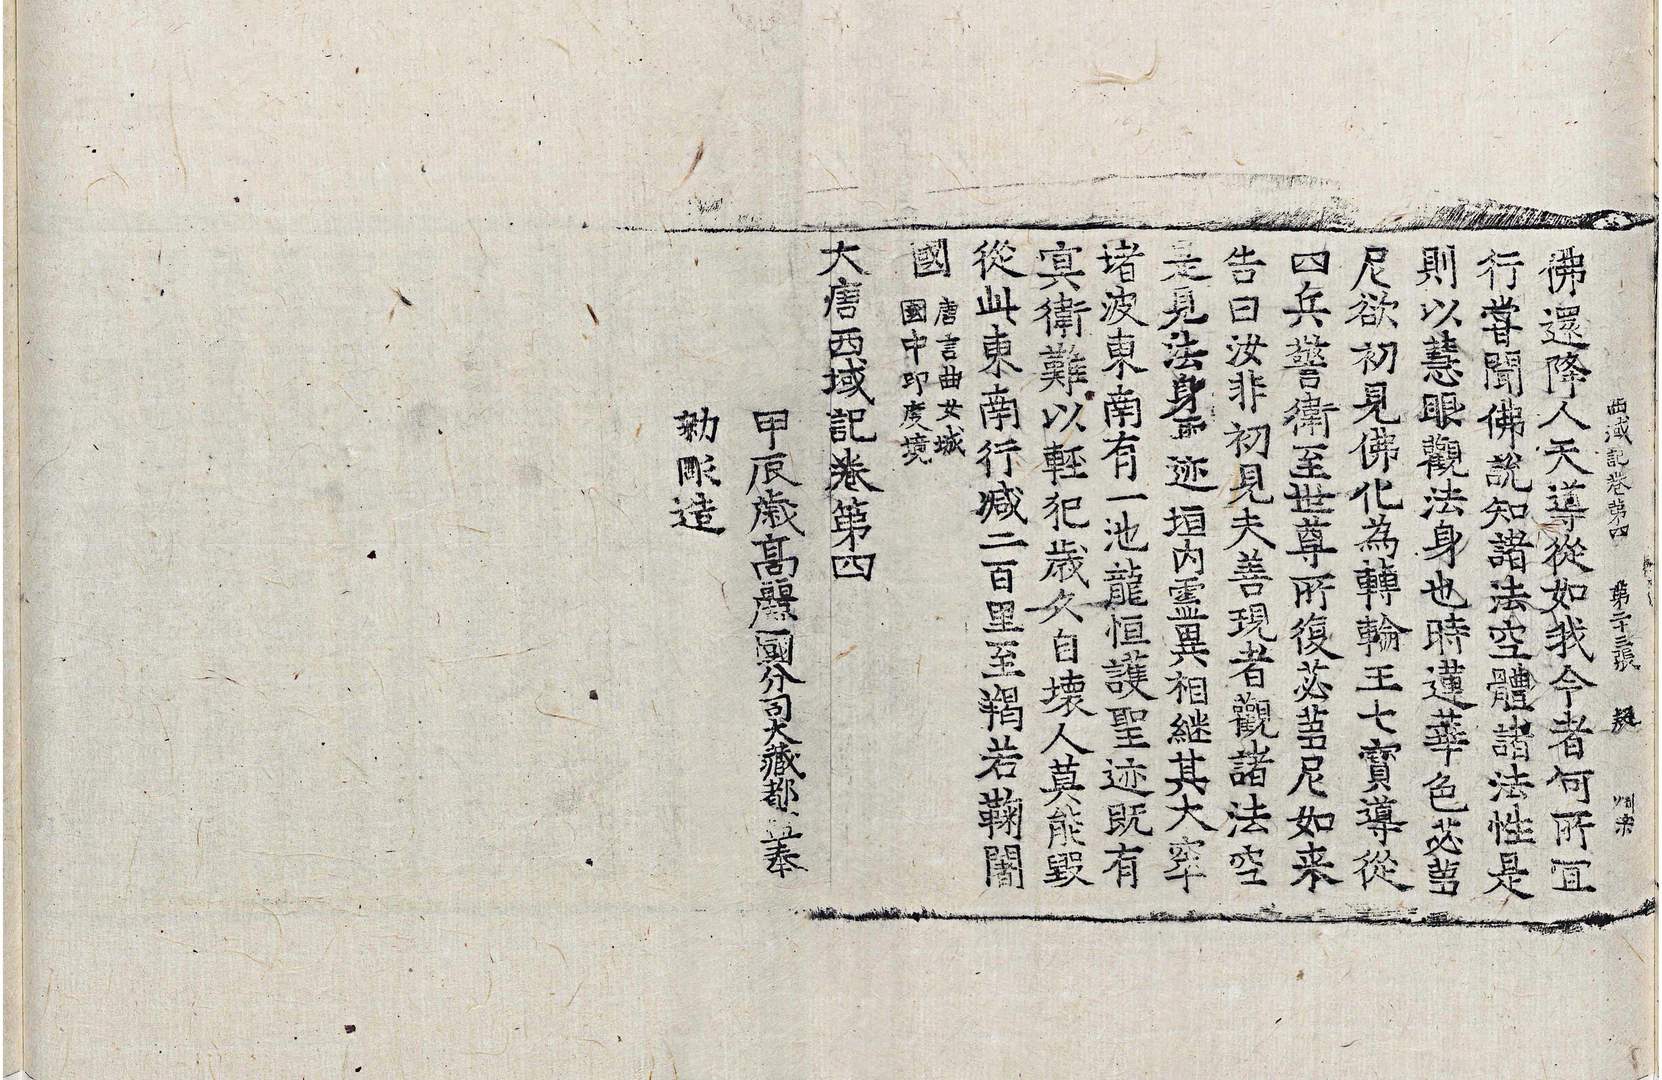 西域記卷第四 第二十三張 㠜
佛還降人天導從如我今者何所宜
行嘗聞佛說知諸法空體諸法性是
則以慧眼觀法身也時蓮華色苾芻
尼欲初見佛化為轉輪王七寶導從
四兵警衛至世尊所復苾芻尼如来
告曰汝非初見夫善現者觀諸法空
是見法身 聖迹垣內靈異相繼其大窣
堵波東南有一池龍恒護聖迹既有
㝠衛難以輕犯歲久自壞人莫能毀
從此東南行減二百里至羯若鞠闍
國 唐言曲女城
國中印度境
大唐西域記卷第四
甲辰歲高麗國分司大藏都監奉
勑彫造